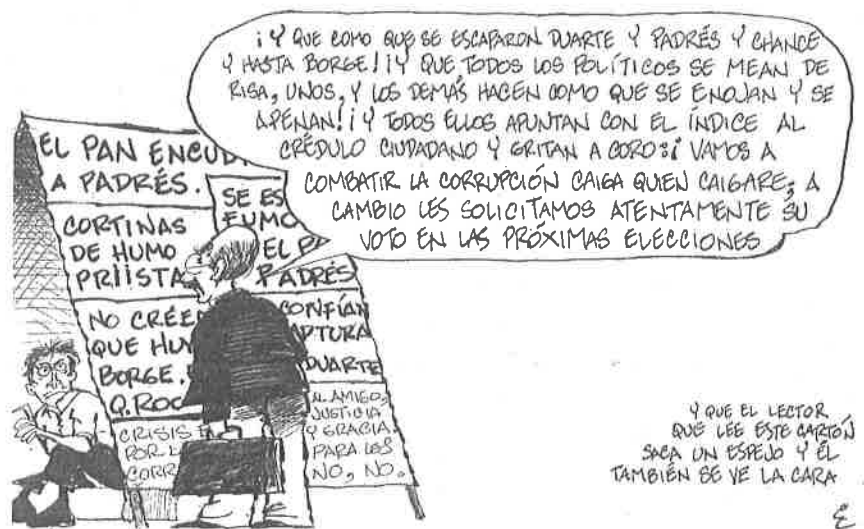 ¡Y QUE COMO QUE SE ESCAPARON DUARTE Y PADRÉS Y CHANCE
Y HASTA BORGE! ¡Y QUE TODOS LOS POLÍTICOS SE MEAN DE
RISA, UNOS, Y LOS DEMÁS HACEN COMO QUE SE ENOJAN Y SE
APENAN! ¡Y TODOS ELLOS APUNTAN CON EL ÍNDICE AL
CRÉDULO CIUDADANO Y GRITAN A CORO: ¡VAMOS A
COMBATIR LA CORRUPCIÓN CAIGA QUIEN CAIGARE, A
CAMBIO LES SOLICITAMOS ATENTAMENTE SU
VOTO EN LAS PRÓXIMAS ELECCIONES
EL PAN ENCUB
A PADRÉS.
SE ES
FUMO
EL P
PADRÉS
CORTINAS
DE HUMO
PRIISTA
NO CRÉE
QUE HU
BORGE.
Q. ROO
CONFÍAN
APTURA
DUARTE
CRISIS
POR L
CORR
AL AMIGO,
JUSTICIA
Y GRACIA.
PARA LOS
NO, NO.
Y QUE EL LECTOR
QUE LEE ESTE CARTÓN
SACA UN ESPEJO Y ÉL
TAMBIÉN SE VE LA CARA